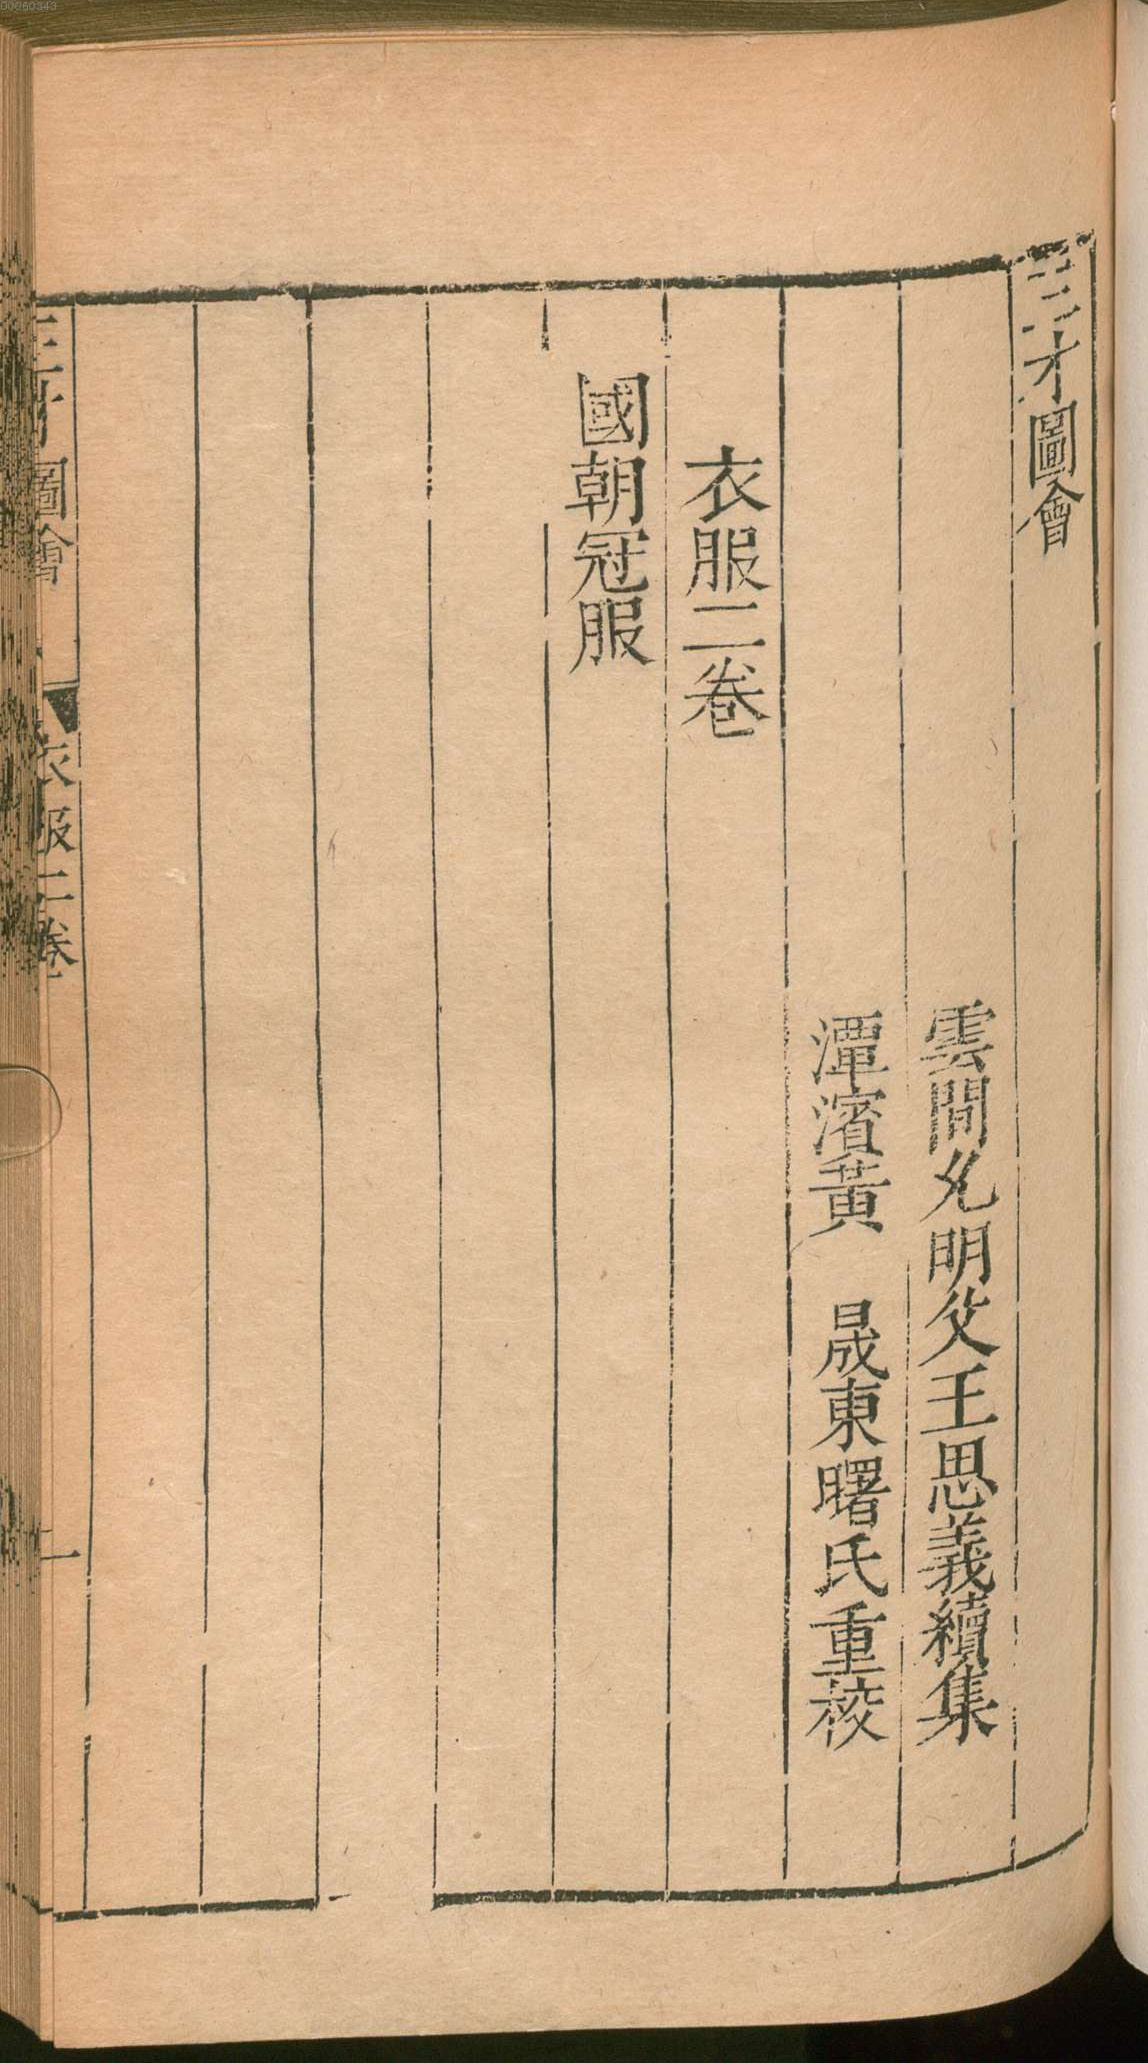 00060343
三才圖會
雲間允明父王思義續集
潭濱黃　晟東曙氏重校
衣服二卷
國朝冠服
三才圖會　衣服二卷　一